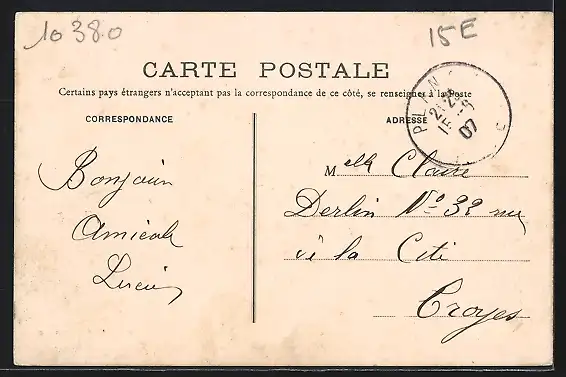 10380
15E
CARTE POSTALE
Certains pays étrangers n'acceptant pas la correspondance de ce côté, se renseigner à la Poste
CORRESPONDANCE
ADRESSE
07
Bonjour
Amical
Lucien
Melle Claire
Derlin No 32 rue
de la Cité
Troyes